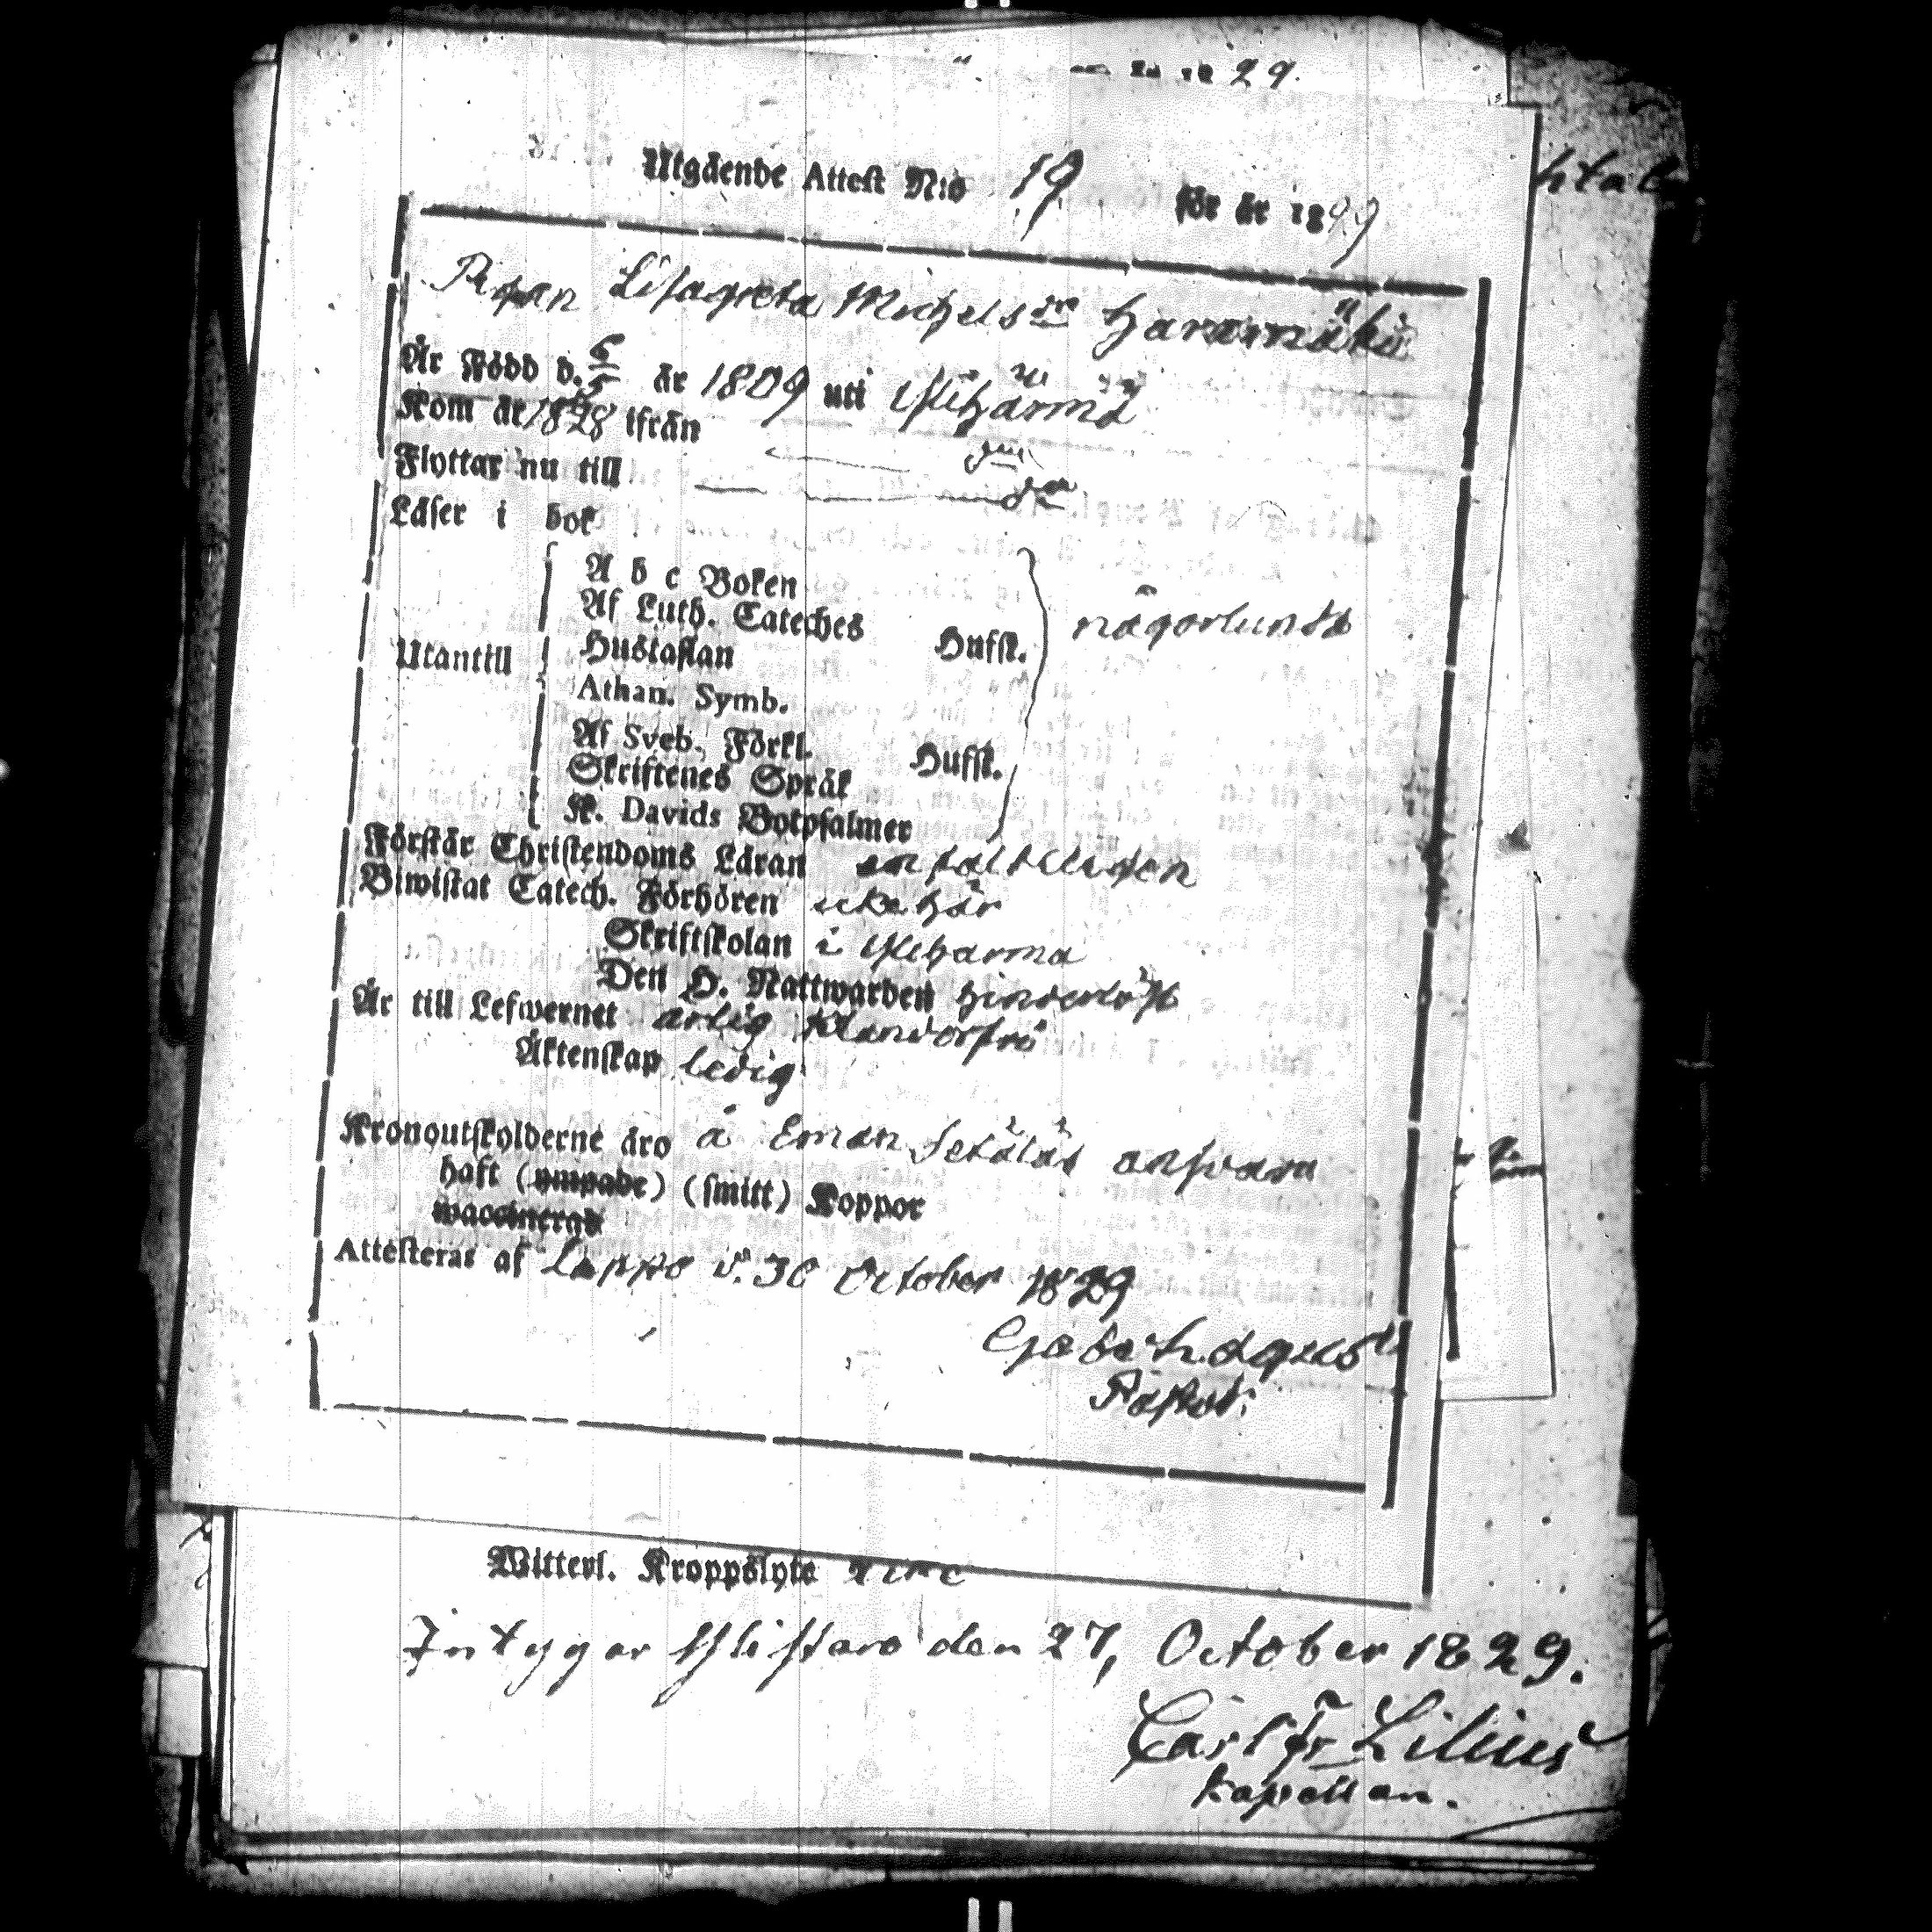 29.
Utgående Attest N:o 19 för år 1829
Pigan Lisagreta Michelsdr Harjamäki
Är Född d. 6/5 år 1809 uti Ylihärmä
Kom år 1828 ifrån
Flyttar nu till
Läser i bok
A b c Boken
Af Luth. Cateches Hufst. någorlunda
Utantill Hustaflan
Athan. Symb.
Af Sveb. Förkl. Hufst.
Skriftenes Språk
K. Davids Botpsalmer
Förstår Christendoms Läran enfaldeligen
Biwistat Catech. Förhören icke här
Skriftskolan i Ylihärmä
Den H. Nattwarden hinderlöst
Är till Lefwernet ärlig klanderfri
Äktenskap ledig
Kronoutskylderne äro å Eman Setäläs answar
haft (ympade) (smitt) Koppor
waccinerad
Attesteras af Lappo d. 30 October 1829
Pastor
Witterl. Kroppslyte
Intygar Ylistaro den 27, October 1829.
Carl Fr Lilius
kapellan.